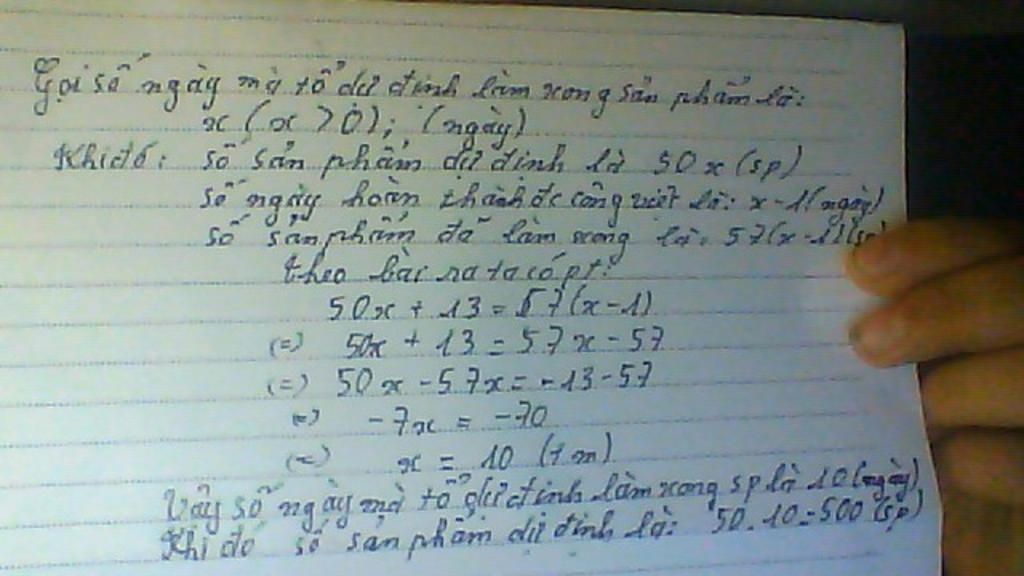 Gọi số ngày mà tổ dự định làm xong sản phẩm là:
x (x > 0); (ngày)
Khi đó: số sản phẩm dự định là 50x (sp)
số ngày hoàn thành đc công việt là: x - 1 (ngày)
số sản phẩm đã làm xong là: 57(x - 1) (sp)
theo bài ra ta có pt:
50x + 13 = 57(x - 1)
(=) 50x + 13 = 57x - 57
(=) 50x - 57x = -13 - 57
(=) -7x = -70
(=) x = 10 (t m)
Vậy số ngày mà tổ dự định làm xong sp là 10 (ngày)
Khi đó số sản phẩm dự định là: 50.10 = 500 (sp)